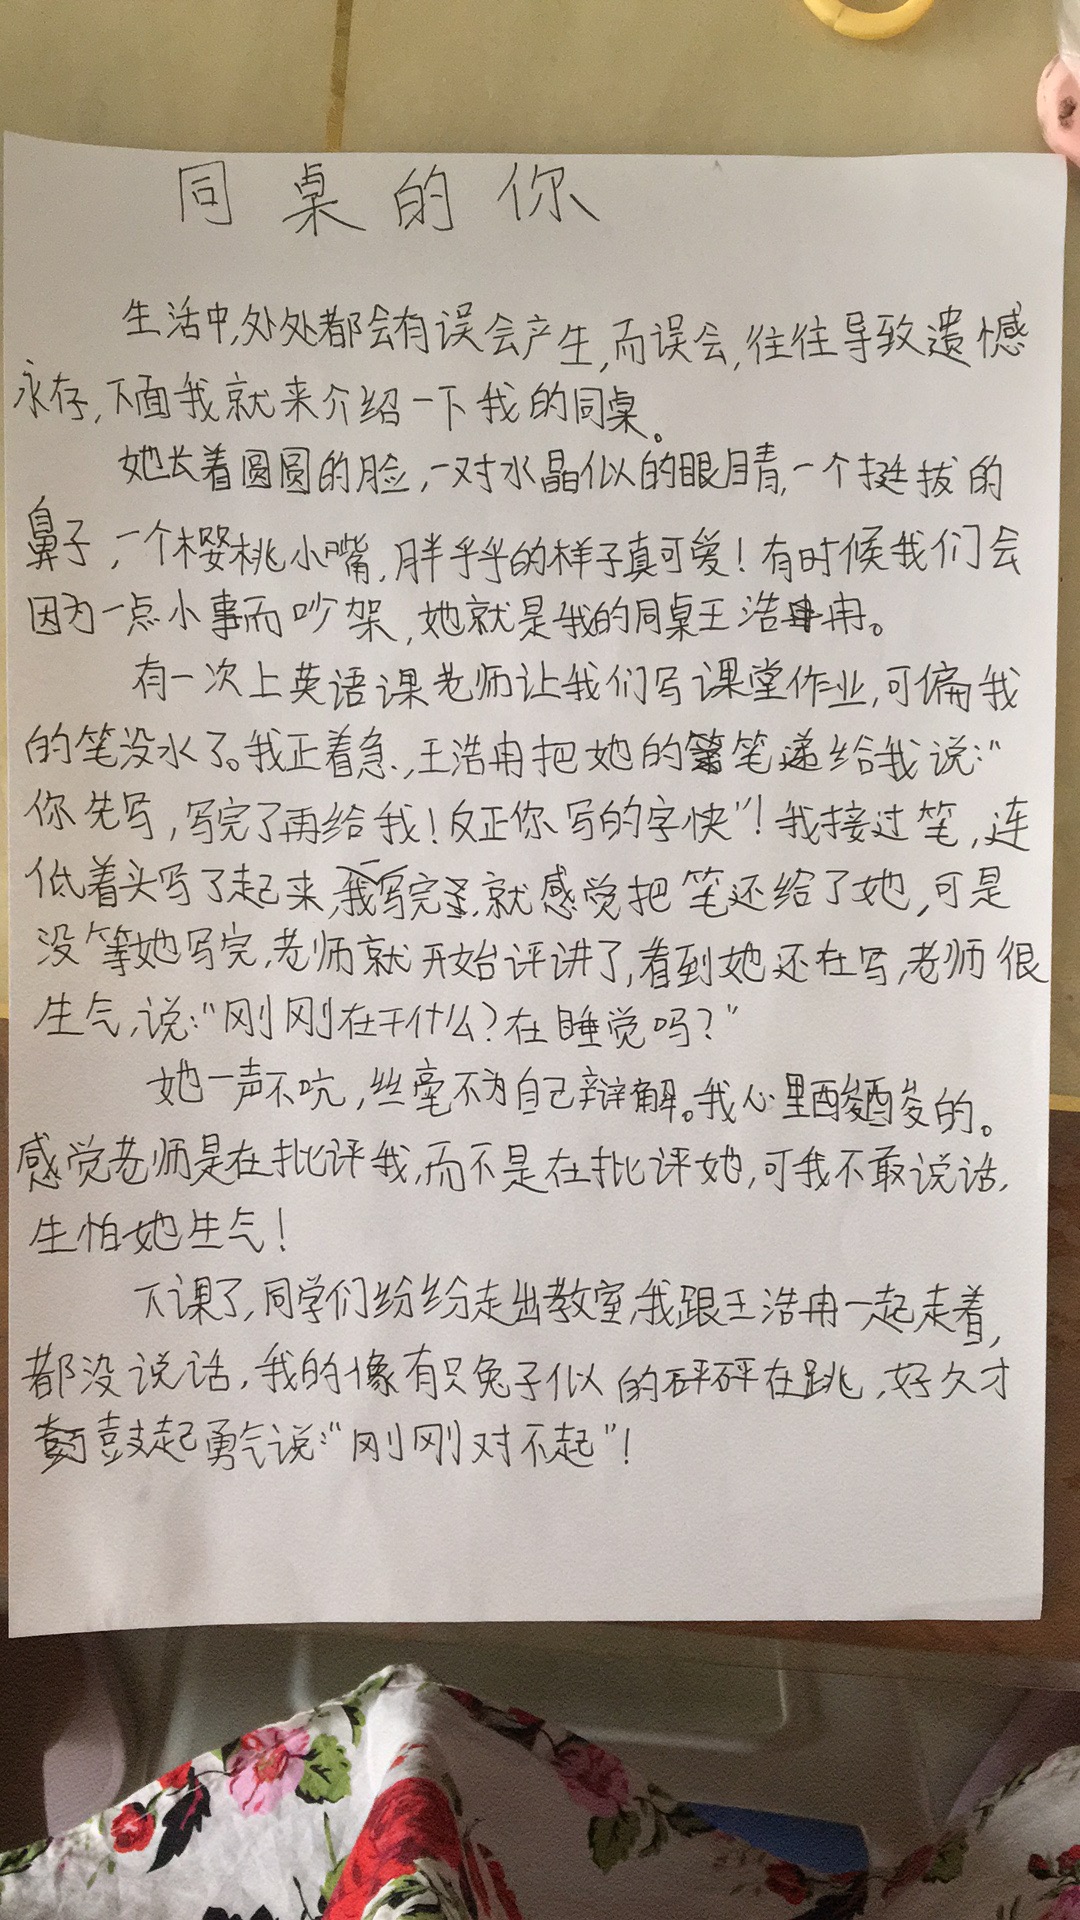 同桌的你
生活中,处处都会有误会产生,而误会,往往导致遗憾
永存,下面我就来介绍一下我的同桌。
她长着圆圆的脸,一对水晶似的眼睛,一个挺拔的
鼻子,一个樱桃小嘴,胖乎乎的样子真可爱!有时候我们会
因为一点小事而吵架,她就是我的同桌王浩冉。
有一次上英语课老师让我们写课堂作业,可偏我
的笔没水了。我正着急,王浩冉把她的笔递给我说:“
你先写,写完了再给我!反正你写的字快”!我接过笔,连
低着头写了起来,我写完就感觉把笔还给了她,可是
没等她写完,老师就开始评讲了,看到她还在写,老师很
生气,说:“刚刚在干什么?在睡觉吗?”
她一声不吭,丝毫不为自己辩解。我心里酸酸的。
感觉老师是在批评我,而不是在批评她,可我不敢说话,
生怕她生气!
下课了,同学们纷纷走出教室,我跟王浩冉一起走着,
都没说话,我的像有只兔子似的砰砰在跳,好久才
鼓起勇气说:“刚刚对不起”!